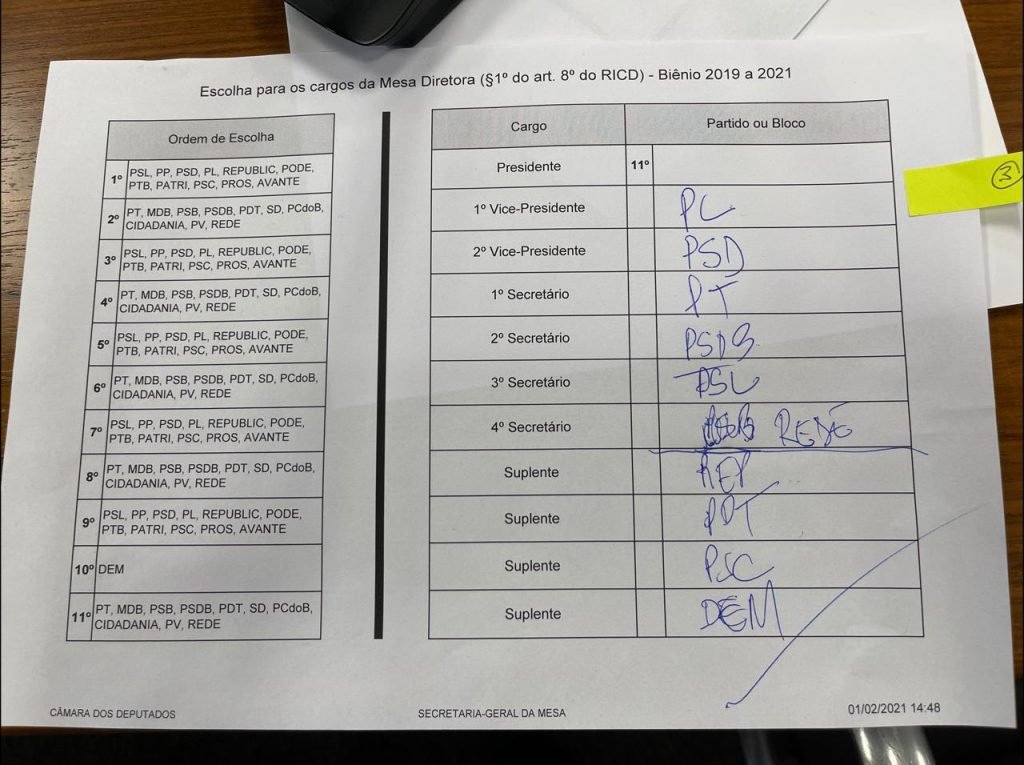 Escolha para os cargos da Mesa Diretora (§1º do art. 8º do RICD) - Biênio 2019 a 2021
Ordem de Escolha
1º PSL, PP, PSD, PL, REPUBLIC, PODE,
PTB, PATRI, PSC, PROS, AVANTE
2º PT, MDB, PSB, PSDB, PDT, SD, PCdoB,
CIDADANIA, PV, REDE
3º PSL, PP, PSD, PL, REPUBLIC, PODE,
PTB, PATRI, PSC, PROS, AVANTE
4º PT, MDB, PSB, PSDB, PDT, SD, PCdoB,
CIDADANIA, PV, REDE
5º PSL, PP, PSD, PL, REPUBLIC, PODE,
PTB, PATRI, PSC, PROS, AVANTE
6º PT, MDB, PSB, PSDB, PDT, SD, PCdoB,
CIDADANIA, PV, REDE
7º PSL, PP, PSD, PL, REPUBLIC, PODE,
PTB, PATRI, PSC, PROS, AVANTE
8º PT, MDB, PSB, PSDB, PDT, SD, PCdoB,
CIDADANIA, PV, REDE
9º PSL, PP, PSD, PL, REPUBLIC, PODE,
PTB, PATRI, PSC, PROS, AVANTE
10º DEM
11º PT, MDB, PSB, PSDB, PDT, SD, PCdoB,
CIDADANIA, PV, REDE
Cargo Partido ou Bloco
Presidente 11º
1º Vice-Presidente PL
2º Vice-Presidente PSD
1º Secretário PT
2º Secretário PSDB
3º Secretário PSL
4º Secretário REDE
Suplente REP
Suplente PDT
Suplente PSC
Suplente DEM
3
CÂMARA DOS DEPUTADOS
SECRETARIA-GERAL DA MESA
01/02/2021 14:48